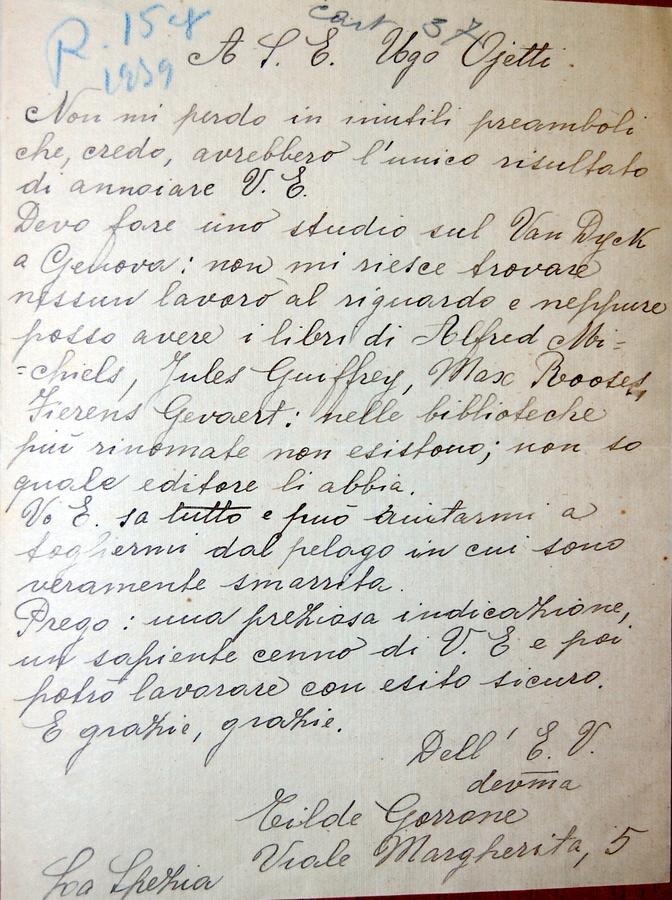 R. 15-8
1939
cart 37
A S. E. Ugo Ojetti.
Non mi perdo in inutili preamboli
che, credo, avrebbero l'unico risultato
di annoiare V. E.
Devo fare uno studio sul Van Dyck
a Genova: non mi riesce trovare
nessun lavoro al riguardo e neppure
posso avere i libri di Alfred Mi=
=chiels, Jules Guiffrey, Max Rooses,
Fierens Gevaert: nelle biblioteche
più rinomate non esistono; non so
quale editore li abbia.
V. E. sa tutto e può aiutarmi a
togliermi dal pelago in cui sono
veramente smarrita.
Prego: una preziosa indicazione,
un sapiente cenno di V. E e poi
potrò lavorare con esito sicuro.
E grazie, grazie.
Dell' E. V.
devma
Tilde Gorrone
Viale Margherita, 5
La Spezia